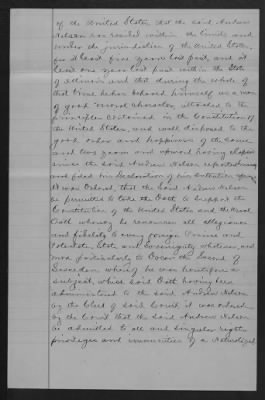 of the United States, that the said Andrew
Nelson has resided within the limits and
under the jurisdiction of the United States,
for at least five years last past, and at
least one year last past within the State
of Illinois and that during the whole of
that time he has behaved himself as a man
of good moral character, attached to the
principles contained in the Constitution of
the United States, and well disposed to the
good order and happiness of the same
and two years and upward having elapsed
since the said Andrew Nelson reported
and filed his Declaration of his intention
it was Ordered, that the said Andrew Nelson
be permitted to take the Oath to support the
Constitution of the United States and the usual
Oath whereby he renounces all allegiance
and fidelity to every foreign Prince and
Potentate, State and Sovereignty whatever, and
more particularly to Oscar the Second of
Sweden whereof he was heretofore a
subject, which said Oath having been
administered to the said Andrew Nelson
by the Clerk of said Court it was ordered
by the Court that the said Andrew Nelson
be admitted to all and singular rights
privileges and immunities of a Naturalized